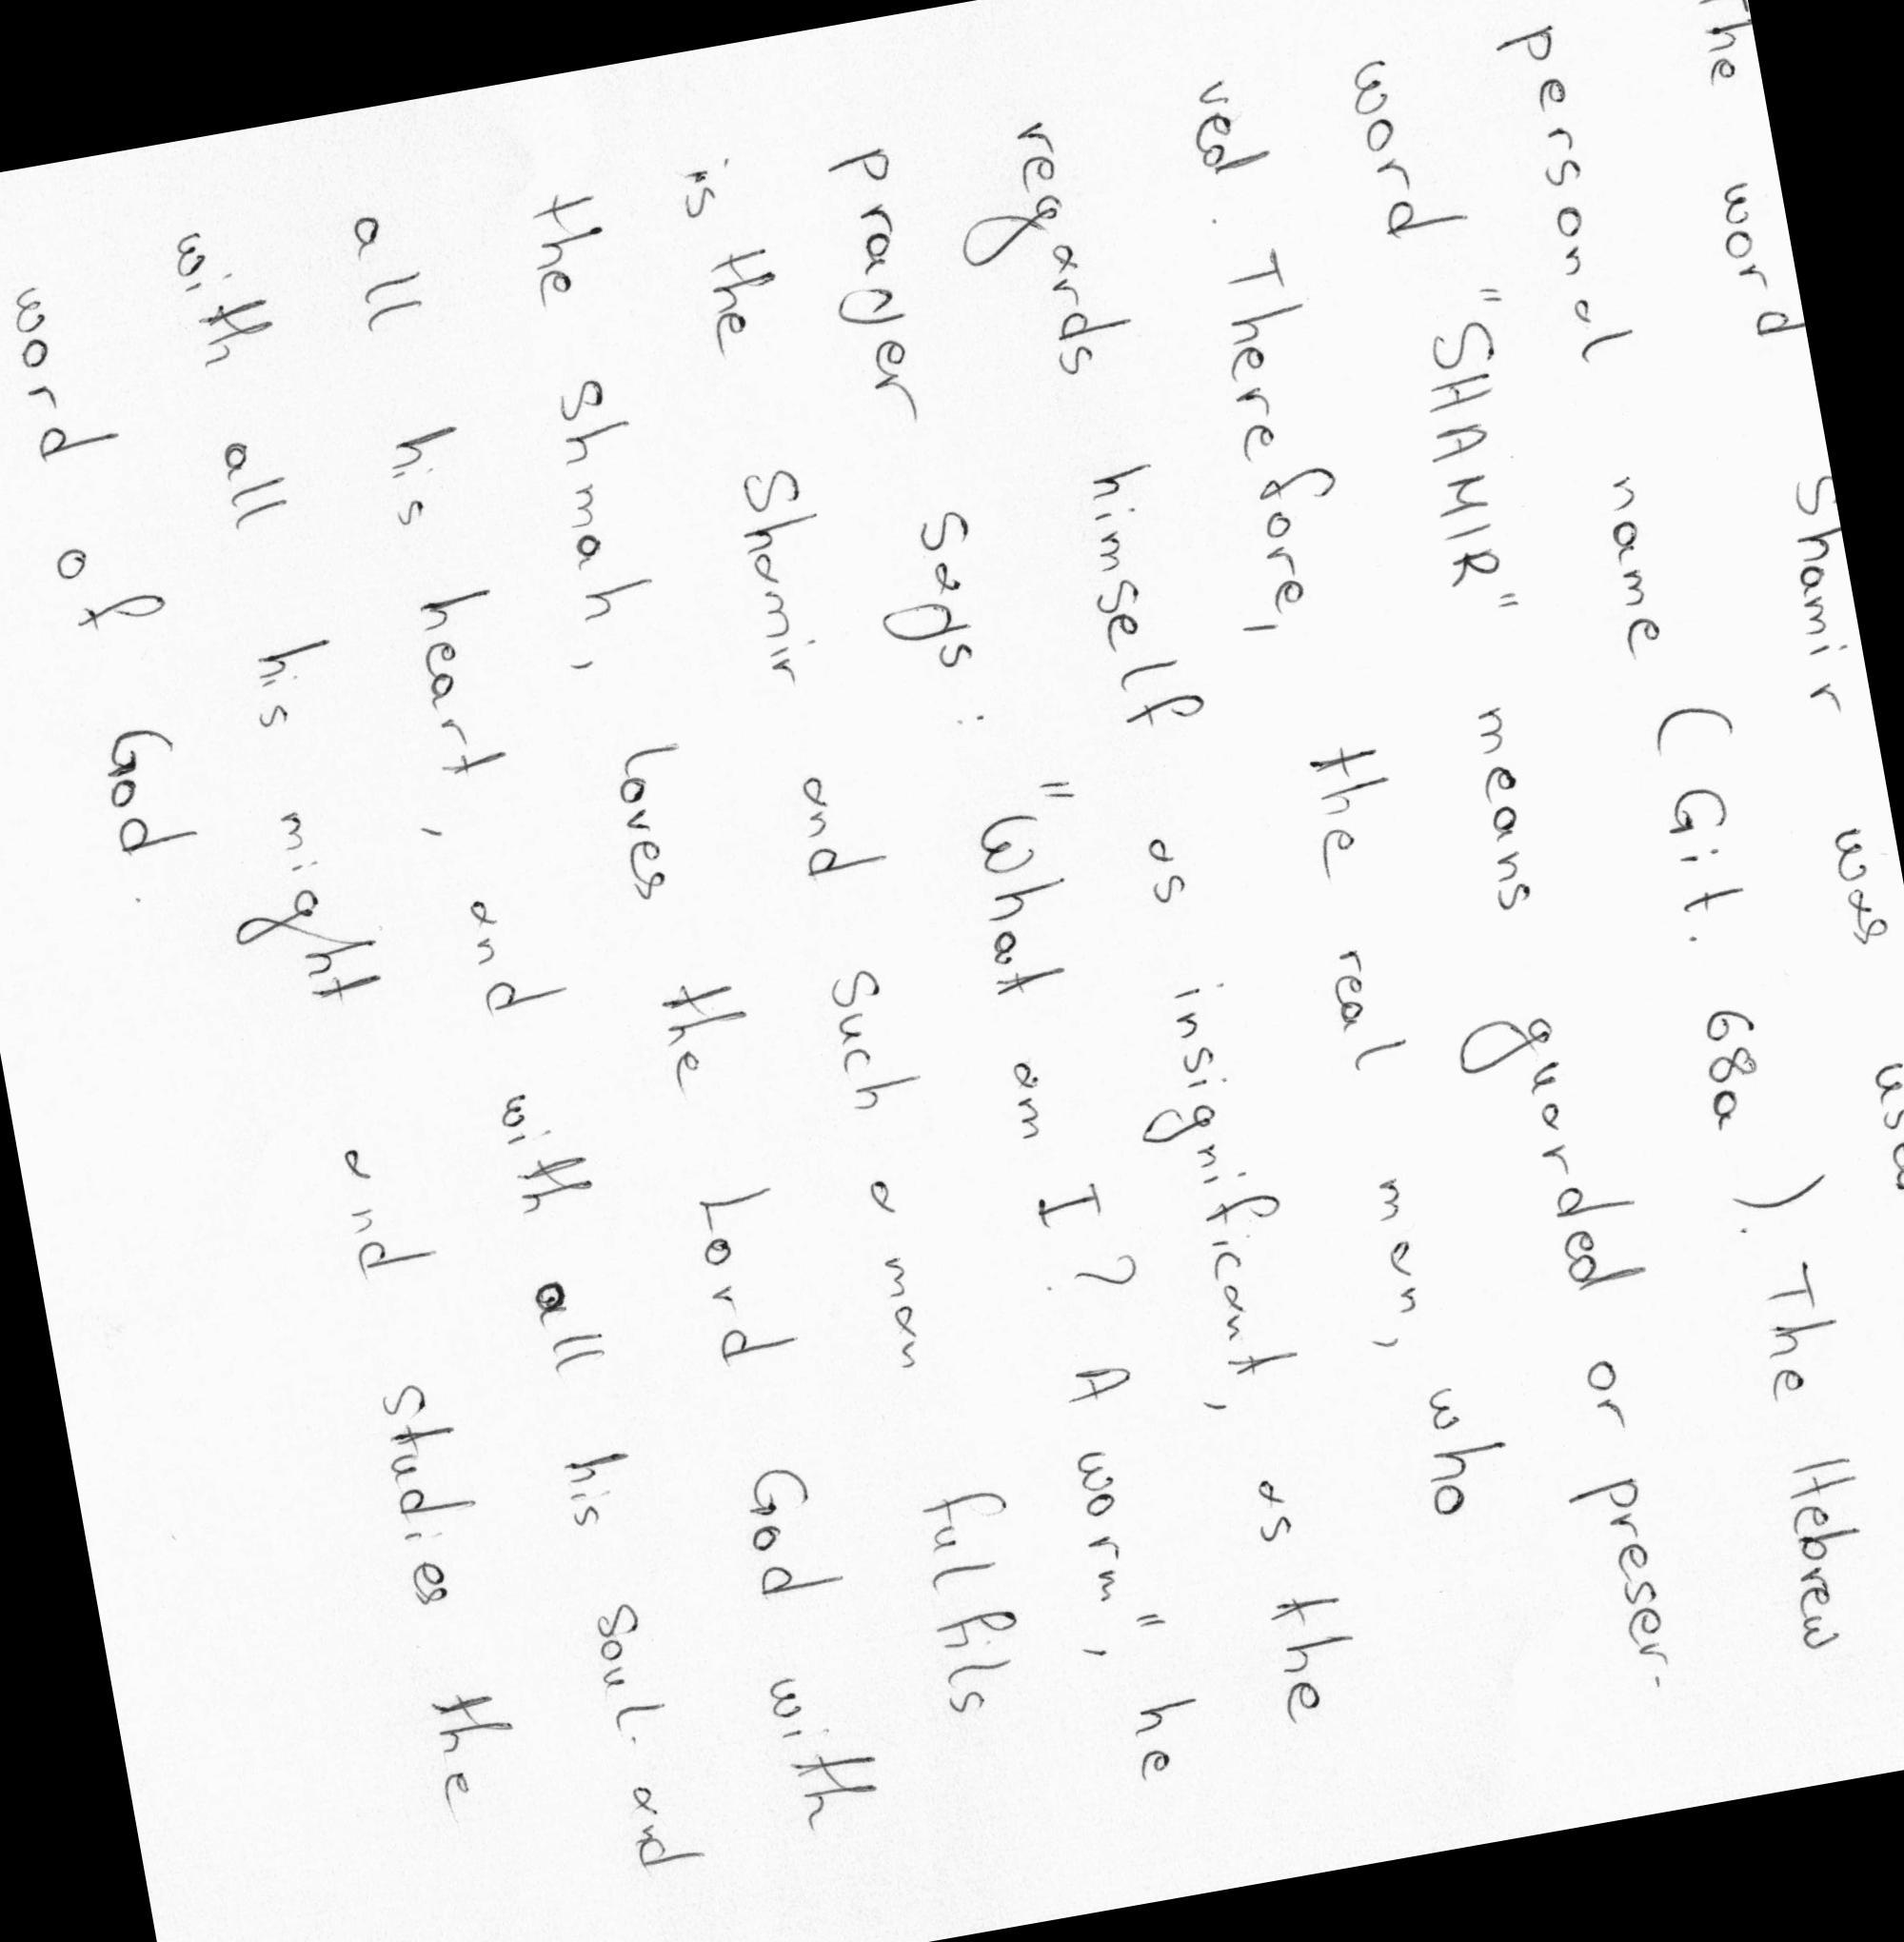 The word Shamir was
personal name (Git. 68a). The Hebrew
word "SHAMIR" means guarded or preser-
ved. Therefore, the real man, who
regards himself as insignificant, as the
prayer says: "What am I? A worm", he
is the Shamir and such a man fulfils
the Shmah, loves the Lord God with
all his heart, and with all his soul and
with all his might and studies the
word of God.